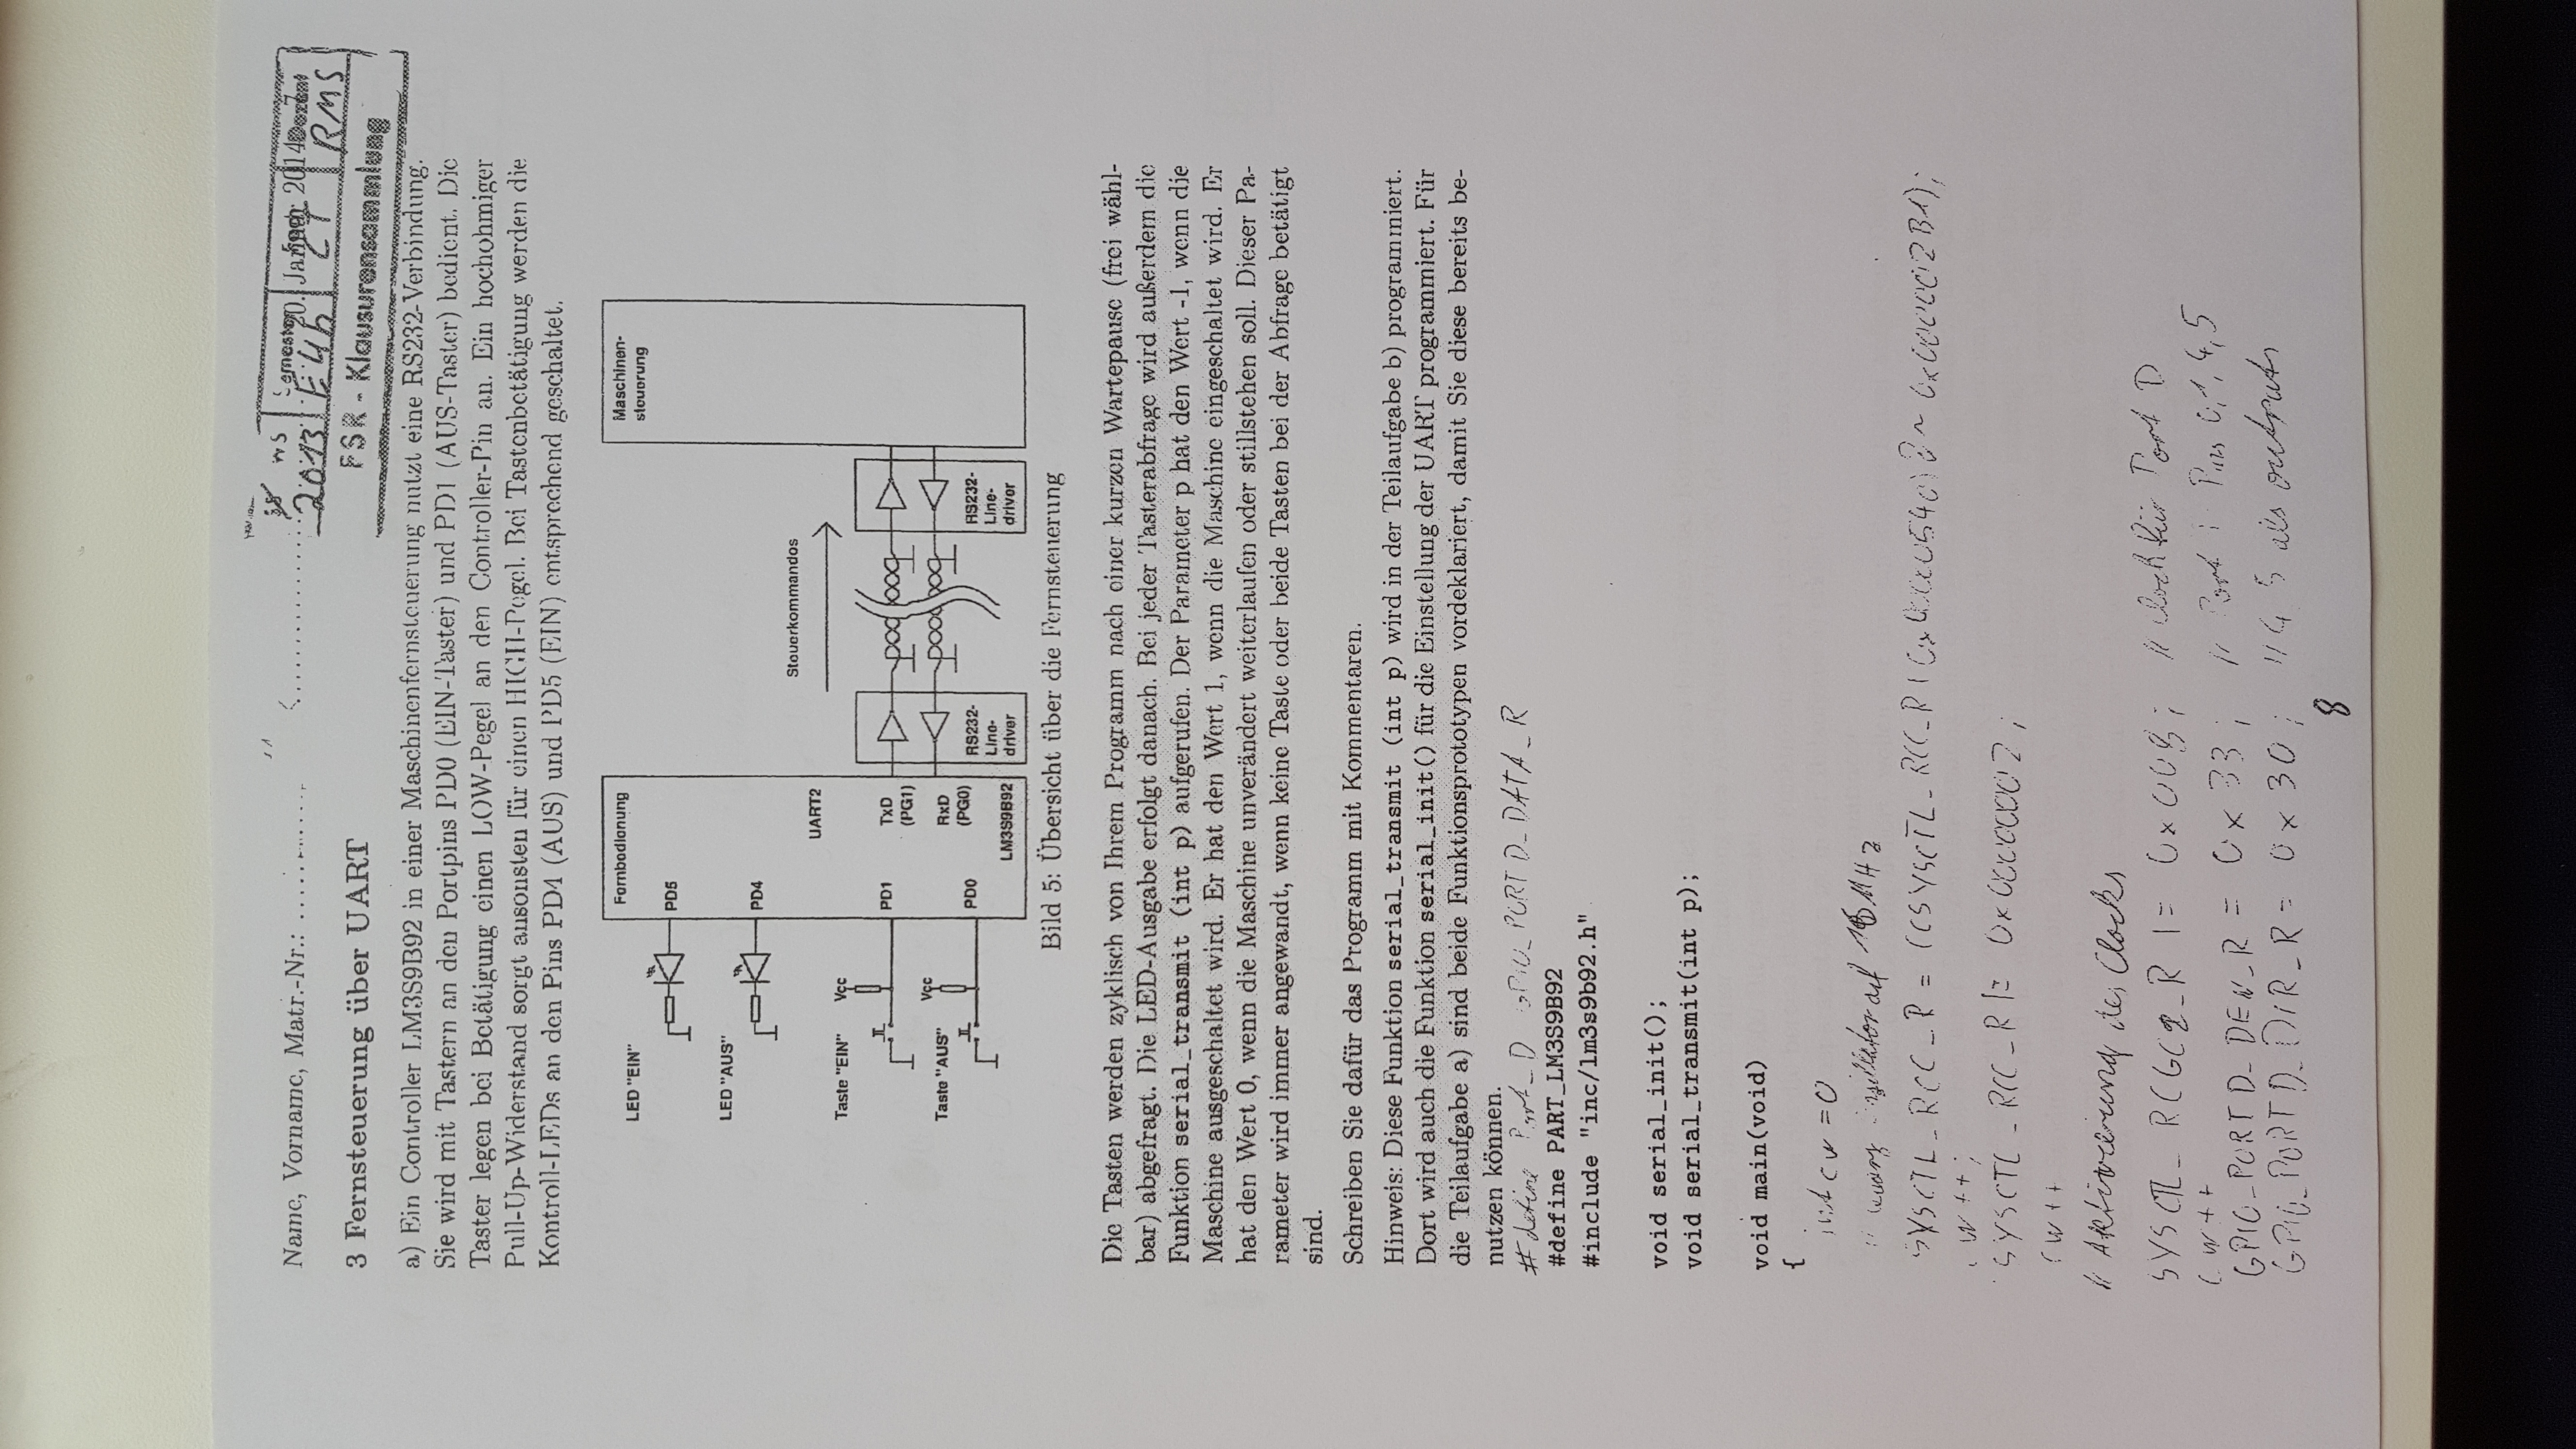 Name, Vorname, Matr.-Nr.:
WS
2013
Semester
E4b
CT
RMS
20. Januar 2014
FSR - Klausurensammlung
3 Fernsteuerung über UART
a) Ein Controller LM3S9B92 in einer Maschinenfernsteuerung nutzt eine RS232-Verbindung.
Sie wird mit Tastern an den Portpins PD0 (EIN-Taster) und PD1 (AUS-Taster) bedient. Die
Taster legen bei Betätigung einen LOW-Pegel an den Controller-Pin an. Ein hochohmiger
Pull-Up-Widerstand sorgt ansonsten für einen HIGH-Pegel. Bei Tastenbetätigung werden die
Kontroll-LEDs an den Pins PD4 (AUS) und PD5 (EIN) entsprechend geschaltet.
LED "EIN"
Fernbedienung
PD5
Maschinen-
steuerung
LED "AUS"
PD4
UART2
Steuerkommandos
Taste "EIN"
Vcc
PD1
TxD
(PG1)
Taste "AUS"
Vcc
PD0
RxD
(PG0)
LM3S9B92
RS232-
Line-
driver
RS232-
Line-
driver
Bild 5: Übersicht über die Fernsteuerung
Die Tasten werden zyklisch von Ihrem Programm nach einer kurzen Wartepause (frei wähl-
bar) abgefragt. Die LED-Ausgabe erfolgt danach. Bei jeder Tasterabfrage wird außerdem die
Funktion serial_transmit (int p) aufgerufen. Der Parameter p hat den Wert -1, wenn die
Maschine ausgeschaltet wird. Er hat den Wert 1, wenn die Maschine eingeschaltet wird. Er
hat den Wert 0, wenn die Maschine unverändert weiterlaufen oder stillstehen soll. Dieser Pa-
rameter wird immer angewandt, wenn keine Taste oder beide Tasten bei der Abfrage betätigt
sind.
Schreiben Sie dafür das Programm mit Kommentaren.
Hinweis: Diese Funktion serial_transmit (int p) wird in der Teilaufgabe b) programmiert.
Dort wird auch die Funktion serial_init() für die Einstellung der UART programmiert. Für
die Teilaufgabe a) sind beide Funktionsprototypen vordeklariert, damit Sie diese bereits be-
nutzen können.
#define Port_D GPIO_PORTD_DATA_R
#define PART_LM3S9B92
#include "inc/lm3s9b92.h"
void serial_init();
void serial_transmit(int p);
void main(void)
{
int cw = 0
// Quarz Oszillator auf 16MHz
SYSCTL_RCC_R = ((SYSCTL_RCC_R | 0x00000540) & ~ 0x000002B1);
cw++;
SYSCTL_RCC_R |= 0x00000002;
cw++
// Aktivierung des Clocks
SYSCTL_RCGC2_R |= 0x008; // Clock für Port D
cw++
GPIO_PORTD_DEN_R = 0x33; // Port Pins 0,1,4,5
GPIO_PORTD_DIR_R = 0x30; // 4 5 als outputs
8